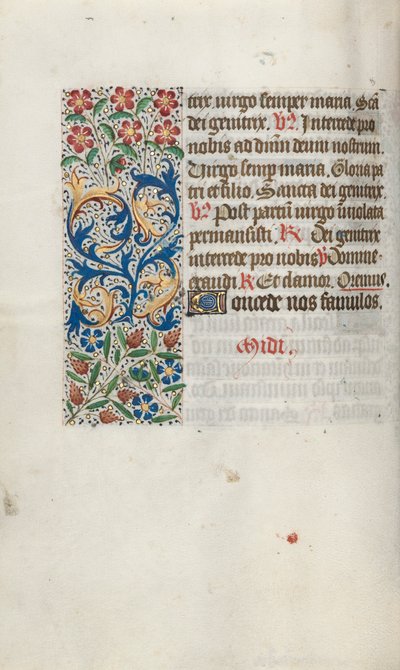 trix. virgo semper maria. Scā
dei genitrix. V℣. Intercede pro
nobis ad dn̄m deum nostrum.
Virgo semp maria. Gloria pa
tri et filio. Sancta dei genitrix.
℣. Post partum virgo inviolata
permansisti. ℟. Dei genitrix
intercede pro nobis. ℣ Domine
exaudi ℟ Et clamor. Oremus.
Concede nos famulos.
Midi.